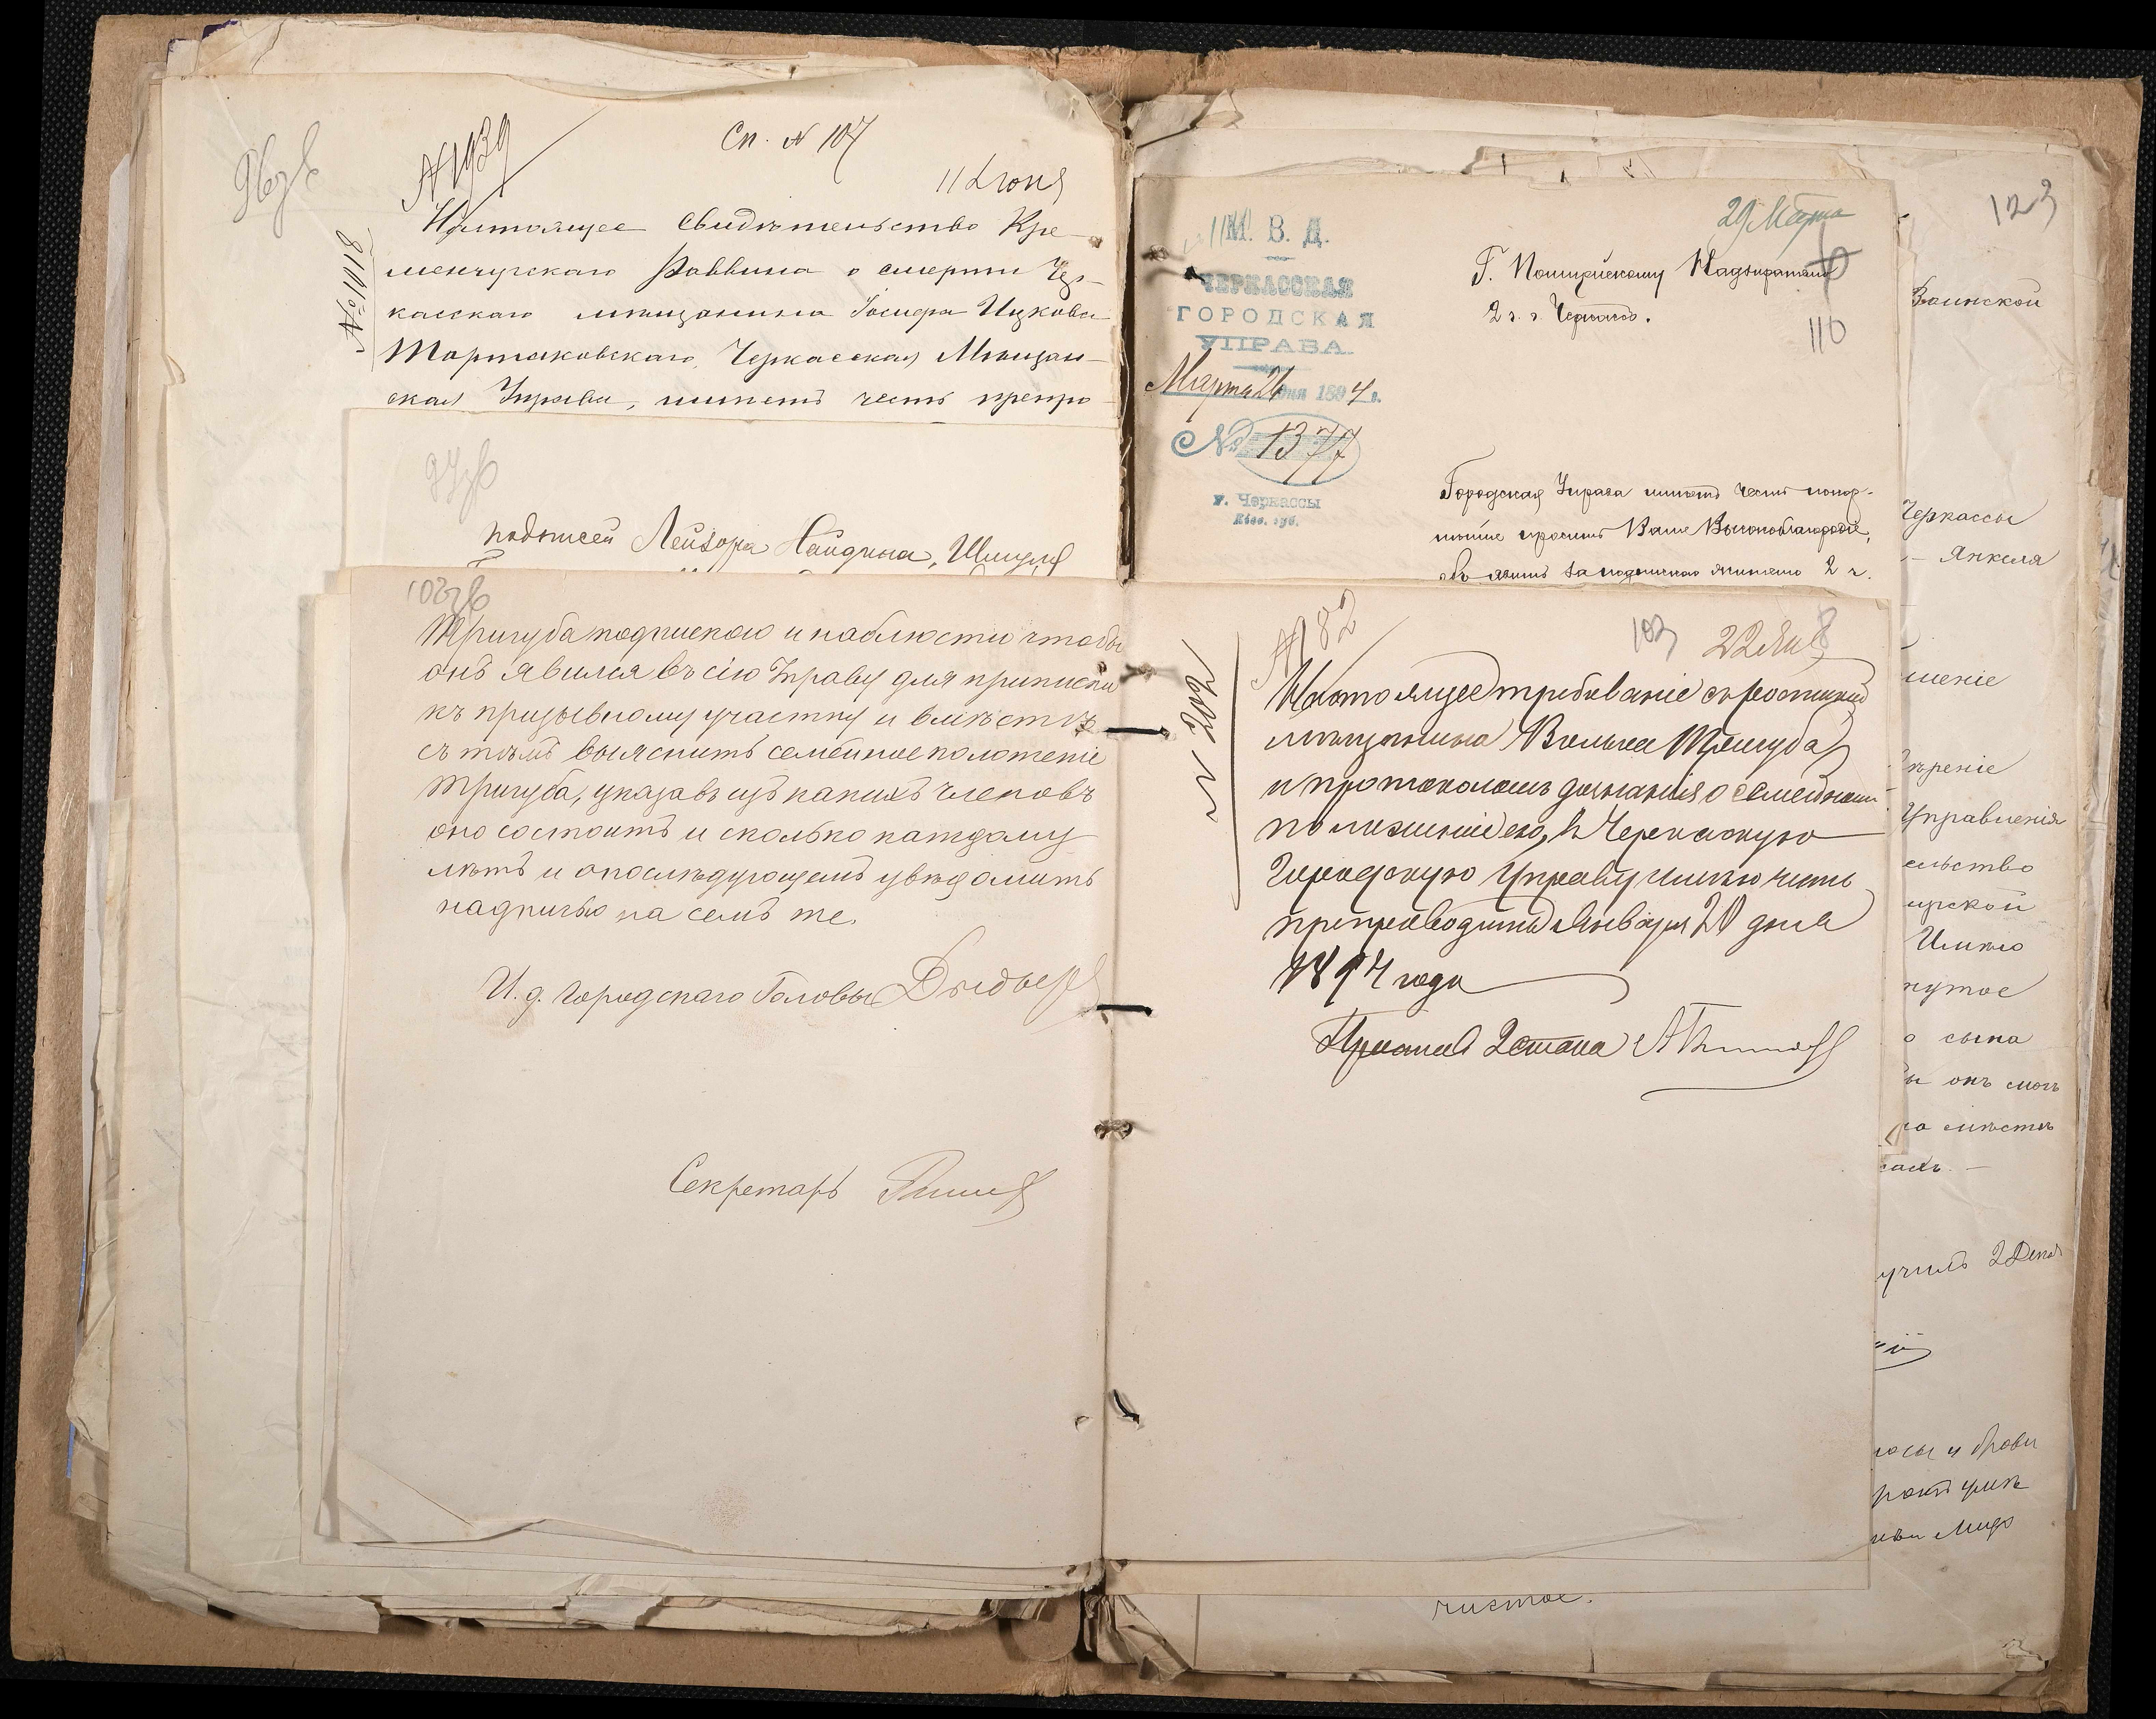 96 зв
№ 1939
Сп. № 107
11 Июня
Настоящее свидѣтельство Кре-
менчугскаго Раввина о смерти Чер-
касскаго мѣщанина Іосифа Ицкова
Тартаковскаго, Черкасская Мѣщан-
ская Управа, имѣетъ честь препро-
97 зв
подписей Лейзора Найдина, Шмуля
102 зв
Тригуба подпискою и наблюсти чтобы
онъ явился въ сію Управу для приписки
къ призывному участку и вмѣстѣ
съ тѣмъ выяснить семейное положеніе
Тригуба, указавъ изъ какихъ членовъ
оно состоитъ и сколько каждому
лѣтъ и о послѣдующемъ увѣдомить
надписью на семъ же.
И. д. Городскаго Головы
Секретарь
М. В. Д.
ЧЕРКАССКАЯ
ГОРОДСКАЯ
УПРАВА.
Марта 26 дня 1894 г.
№ 1377
г. Черкассы
Кіев. губ.
29 Марта
Г. Полицейскому Надзирателю
2 ч. г. Черкассъ.
110
Городская Управа имѣетъ честь покор-
нѣйше просить Ваше Высокоблагородіе,
обязать подпискою жителя 2 ч.
№ 182
103
22 Янв
Настоящее требованіе съ росписной
мѣщанина Волька Тригуба
и протоколомъ дознанія о семейномъ
положеніи его, въ Черкаскую
Городскую Управу имѣю честь
препроводить Января 20 дня
1894 года
123
Воинской
Черкассы
Янкеля
шеніе
ѣреніе
Управленія
ельство
ирской
Имѣю
нутое
о сына
ы онъ могъ
по мѣстѣ
училъ 2 Декаб
осы и брови
чистое.